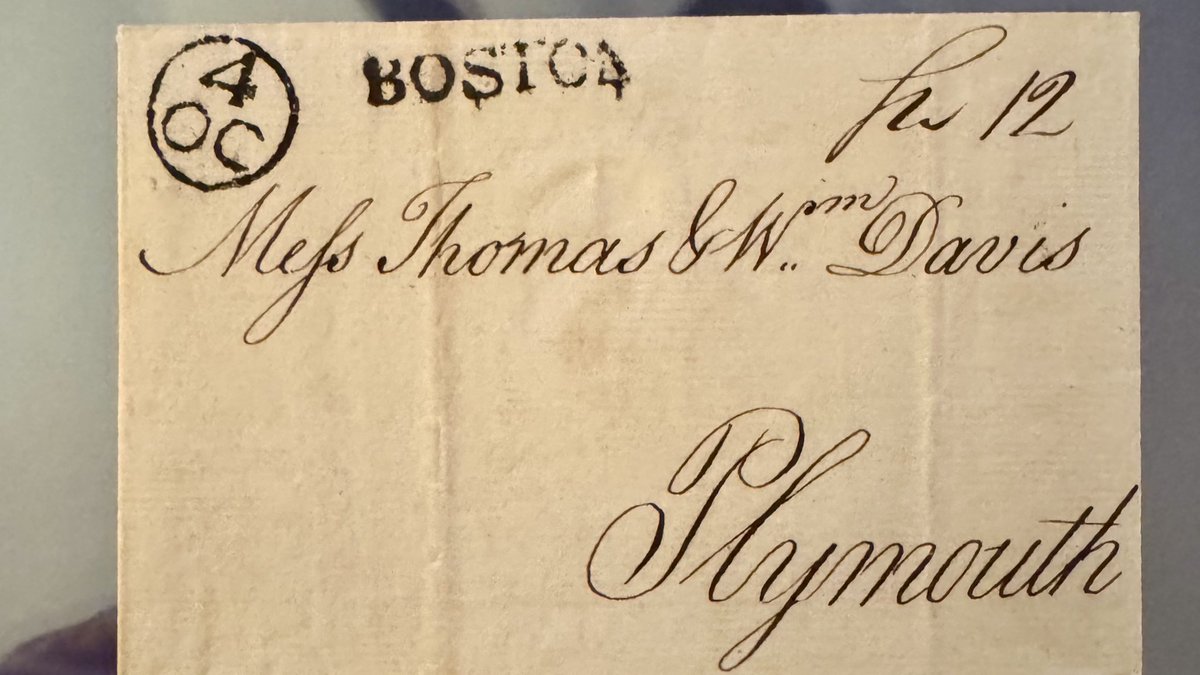 4 BOSTON
OC
12
Meſs Thomas & Wm Davis
Plymouth